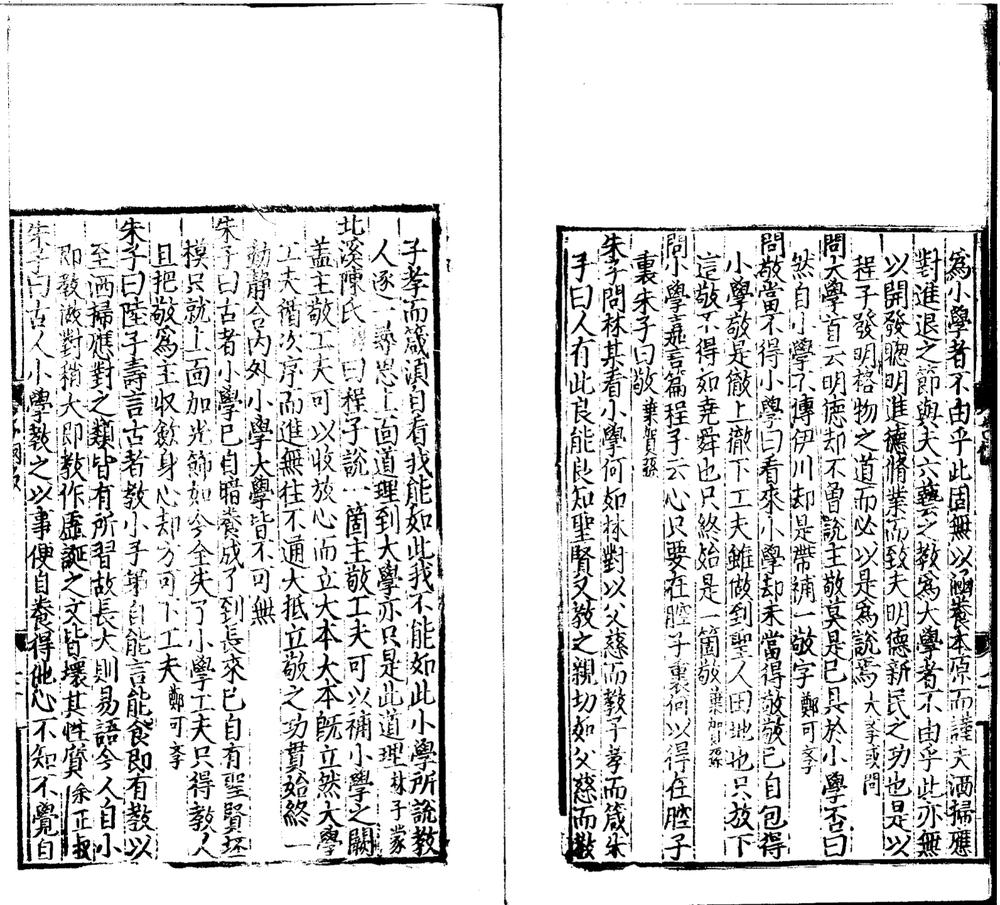 爲小學者不由乎此固無以涵養本原而謹夫洒掃應
對進退之節與夫六藝之教爲大學者不由乎此亦無
以開發聰明進德脩業而致夫明德新民之功也是以
程子發明格物之道而必以是爲說焉大學或問
問大學首云明德却不曾說主敬莫是已具於小學否曰
然自小學不傳伊川却是帶補一敬字鄭可學
問敬當不得小學曰看來小學却未當得敬敬已自包得
小學敬是徹上徹下工夫雖做到聖人田地也只放下
這敬不得如堯舜也只終始是一箇敬葉賀孫
問小學嘉言篇程子云心只要在腔子裏何以得在腔子
裏朱子曰敬葉賀孫
朱子問林其看小學何如林對以父慈而教子孝而箴朱
子曰人有此良能良知聖賢又教之親切如父慈而教
子孝而箴須自看我能如此我不能如此小學所說教
人逐一尋思上面道理到大學亦只是此道理林子蒙
北溪陳氏曰程子說箇主敬工夫可以補小學之闕
蓋主敬工夫可以收放心而立大本大本旣立然大學
工夫循次序而進無往不通大抵立敬之功貫始終一
動靜合內外小學大學皆不可無
朱子曰古者小學已自暗養成了到長來已自有聖賢坯
模只就上面加光飾如今全失了小學工夫只得教人
且把敬爲主收斂身心却方可下工夫鄭可學
朱子曰陸子壽言古者教小子弟自能言能食即有教以
至洒掃應對之類皆有所習故長大則易語今人自小
即教做對稍大即教作虛誕之文皆壞其性質余正叔
朱子曰古人小學教之以事便自養得他心不知不覺自